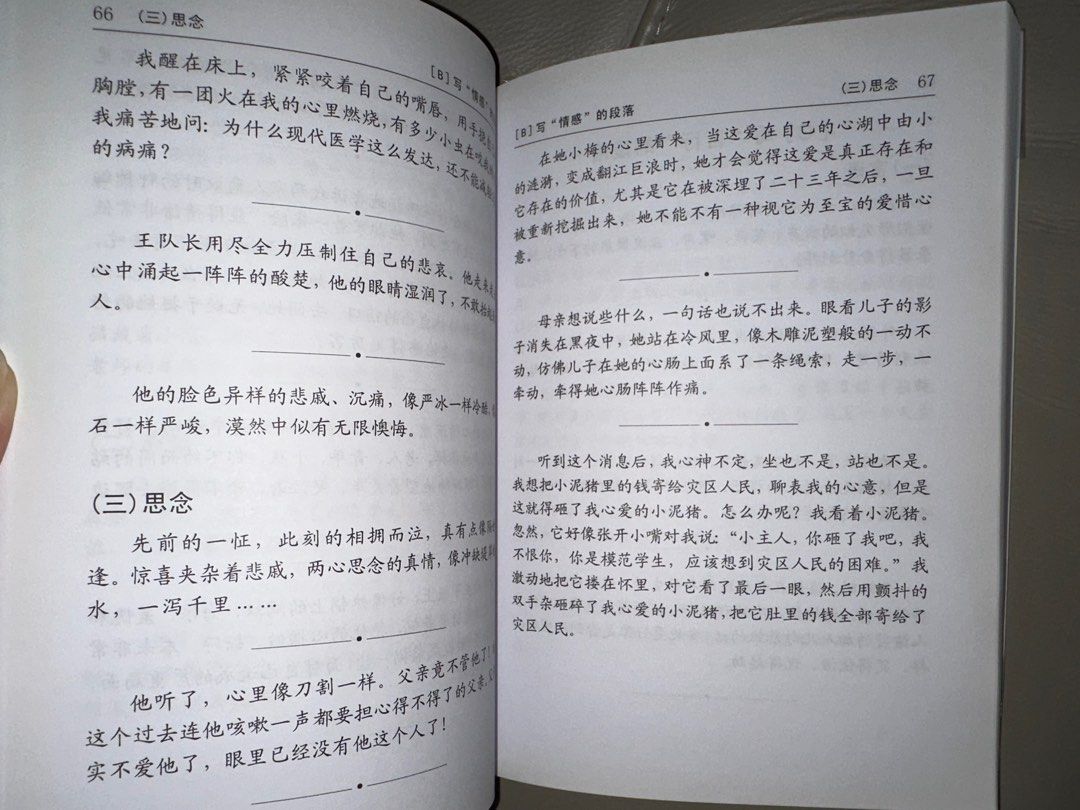 66 （三）思念
[B]写“情感”的
我醒在床上，紧紧咬着自己的嘴唇，用手
胸膛，有一团火在我的心里燃烧，有多少小虫在
我痛苦地问：为什么现代医学这么发达，还不能
的病痛？
王队长用尽全力压制住自己的悲哀。他走来
心中涌起一阵阵的酸楚，他的眼睛湿润了，不敢抬
人。
他的脸色异样的悲戚、沉痛，像严冰一样冷酷，
石一样严峻，漠然中似有无限懊悔。
（三）思念
先前的一怔，此刻的相拥而泣，真有点像
逢。惊喜夹杂着悲戚，两心思念的真情，像冲
水，一泻千里……
他听了，心里像刀割一样。父亲竟不管他了！
这个过去连他咳嗽一声都要担心得不得了的父亲，
实不爱他了，眼里已经没有他这个人了！
[B]写“情感”的段落
（三）思念 67
在她小梅的心里看来，当这爱在自己的心湖中由小
的涟漪，变成翻江巨浪时，她才会觉得这爱是真正存在和
它存在的价值，尤其是它在被深埋了二十三年之后，一旦
被重新挖掘出来，她不能不有一种视它为至宝的爱惜心
意。
母亲想说些什么，一句话也说不出来。眼看儿子的影
子消失在黑夜中，她站在冷风里，像木雕泥塑般的一动不
动，仿佛儿子在她的心肠上面系了一条绳索，走一步，一
牵动，牵得她心肠阵阵作痛。
听到这个消息后，我心神不定，坐也不是，站也不是。
我想把小泥猪里的钱寄给灾区人民，聊表我的心意，但是
这就得砸了我心爱的小泥猪。怎么办呢？我看着小泥猪。
忽然，它好像张开小嘴对我说：“小主人，你砸了我吧，我
不恨你，你是模范学生，应该想到灾区人民的困难。”我
激动地把它搂在怀里，对它看了最后一眼，然后用颤抖的
双手杂砸碎了我心爱的小泥猪，把它肚里的钱全部寄给了
灾区人民。